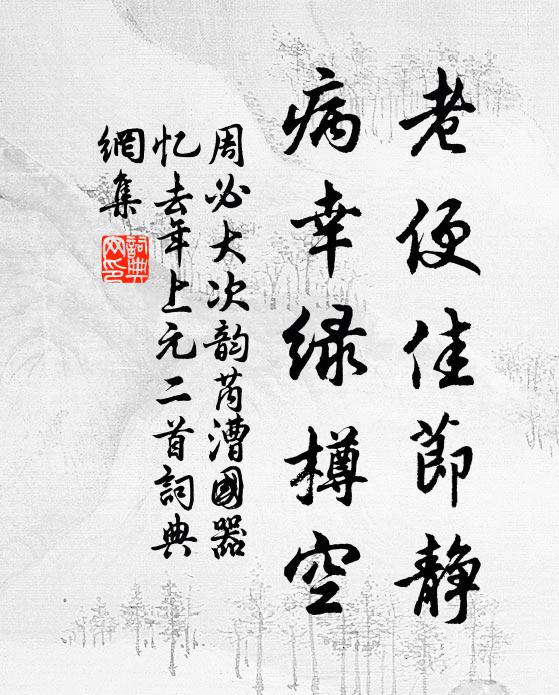 老便佳節静
病幸緑樽空
周必大次韵芮漕國器
忆去年上元二首詞典
網集
詞典網印